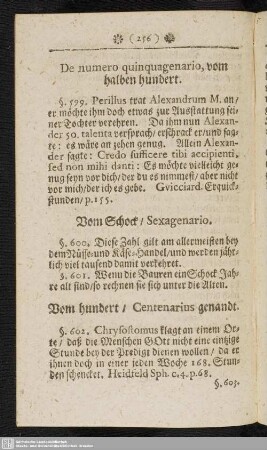 (256)
De numero quinquagenario, vom
halben hundert.
§. 599. Perillus trat Alexandrum M. an/
er möchte ihm doch etwas zur Ausstattung sei-
ner Tochter verehren. Da ihm nun Alexan-
der 50. talenta versprach/ erschrack er/und sag-
te: es wäre an zehen genug. Allein Alexan-
der sagte: Credo sufficere tibi accipienti,
sed non mihi danti: Es möchte vielleicht ge-
nug seyn vor dich/der du es nimmest/ aber nicht
vor mich/der ich es gebe. Gvicciard. Erquick-
stunden/p.155.
Vom Schock/ Sexagenario.
§. 600. Diese Zahl gilt am allermeisten bey
dem Nüsse-und Käse-Handel/und werden jähr-
lich viel tausend damit verkehret.
§. 601. Wenn die Bauren ein Schock Jah-
re alt sind/so rechnen sie sich unter die Alten.
Vom hundert/ Centenarius genandt.
§. 602. Chrysostomus klagt an einem Or-
te/ daß die Menschen GOtt nicht eine eintzige
Stunde bey der Predigt dienen wollen/ da er
ihnen doch in einer jeden Woche 168. Stun-
den schencket. Heidfeld Sph. c.4. p.68.
§. 603.